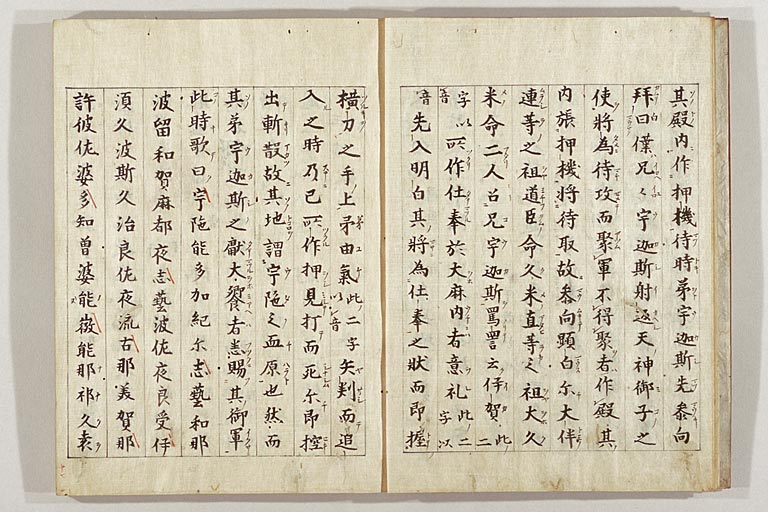 其殿内作押機待時弟宇迦斯先参向
拜曰僕兄〻宇迦斯射返天神御子之
使將為待攻而聚軍不得聚者作殿其
内張押機將待取故参向顕白尓大伴
連等之祖道臣命久米直等之祖大久
米命二人召兄宇迦斯罵詈云伊賀此二
字以音所作仕奉於大麻内者意礼此二字以
音先入明白其將為仕奉之状而即握
横刀之手上矛由氣此二字以音矢刺而追
入之時乃己所作押見打而死尓即控
出斬散故其地謂宇陁之血原也然而
其弟宇迦斯之獻大饗者悉賜其御軍
此時歌曰宇陁能多加紀尓志藝和那
波留和賀麻都夜志藝波佐夜良受伊
須久波斯久治良佐夜流古那美賀那
許波佐婆多知曽婆能微能那祁久袁